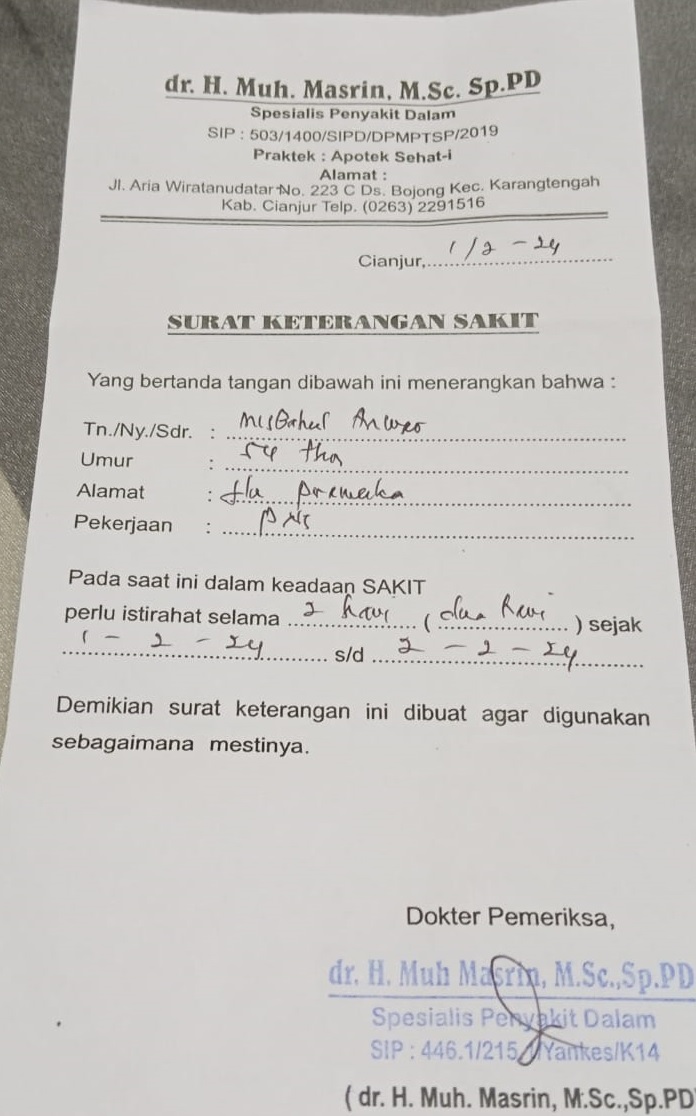 dr. H. Muh. Masrin, M.Sc. Sp.PD
Spesialis Penyakit Dalam
SIP : 503/1400/SIPD/DPMPTSP/2019
Praktek : Apotek Sehat-i
Alamat :
Jl. Aria Wiratanudatar No. 223 C Ds. Bojong Kec. Karangtengah
Kab. Cianjur Telp. (0263) 2291516
Cianjur, 1/2 - 24
SURAT KETERANGAN SAKIT
Yang bertanda tangan dibawah ini menerangkan bahwa :
Tn./Ny./Sdr. : Misbahul
Umur : 54 thn
Alamat :
Pekerjaan : PNS
Pada saat ini dalam keadaan SAKIT
perlu istirahat selama 2 hari ( dua hari ) sejak
1 - 2 - 24 s/d 2 - 2 - 24
Demikian surat keterangan ini dibuat agar digunakan
sebagaimana mestinya.
Dokter Pemeriksa,
dr. H. Muh Masrin, M.Sc.,Sp.PD
Spesialis Penyakit Dalam
SIP : 446.1/215 /Yankes/K14
( dr. H. Muh. Masrin, M.Sc.,Sp.PD